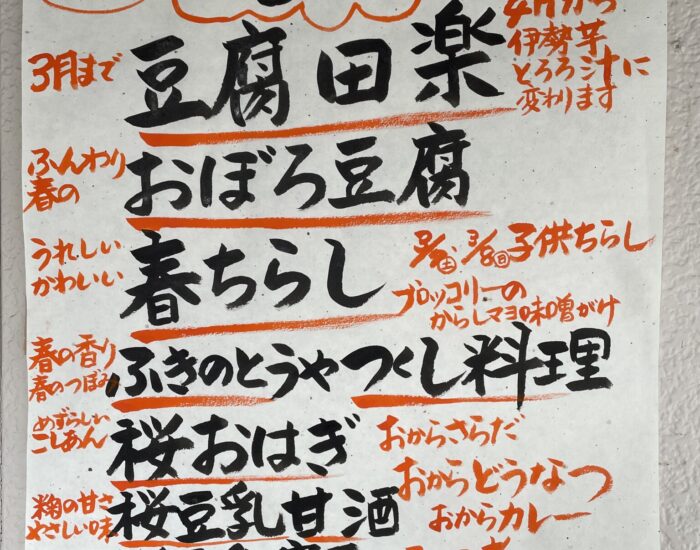 4月から
伊勢芋
とろろ汁に
変わります
3月まで
豆腐田楽
ふんわり
春の
おぼろ豆腐
うれしい
かわいい
春ちらし
3/8㊏ 子供ちらし
ブロッコリーの
からしマヨ味噌がけ
春の香り
春のつぼみ
ふきのとうやつくし料理
めずらしい
こしあん
桜おはぎ
おからさらだ
麹の甘さ
やさしい味
桜豆乳甘酒
おからどうなつ
おからカレー